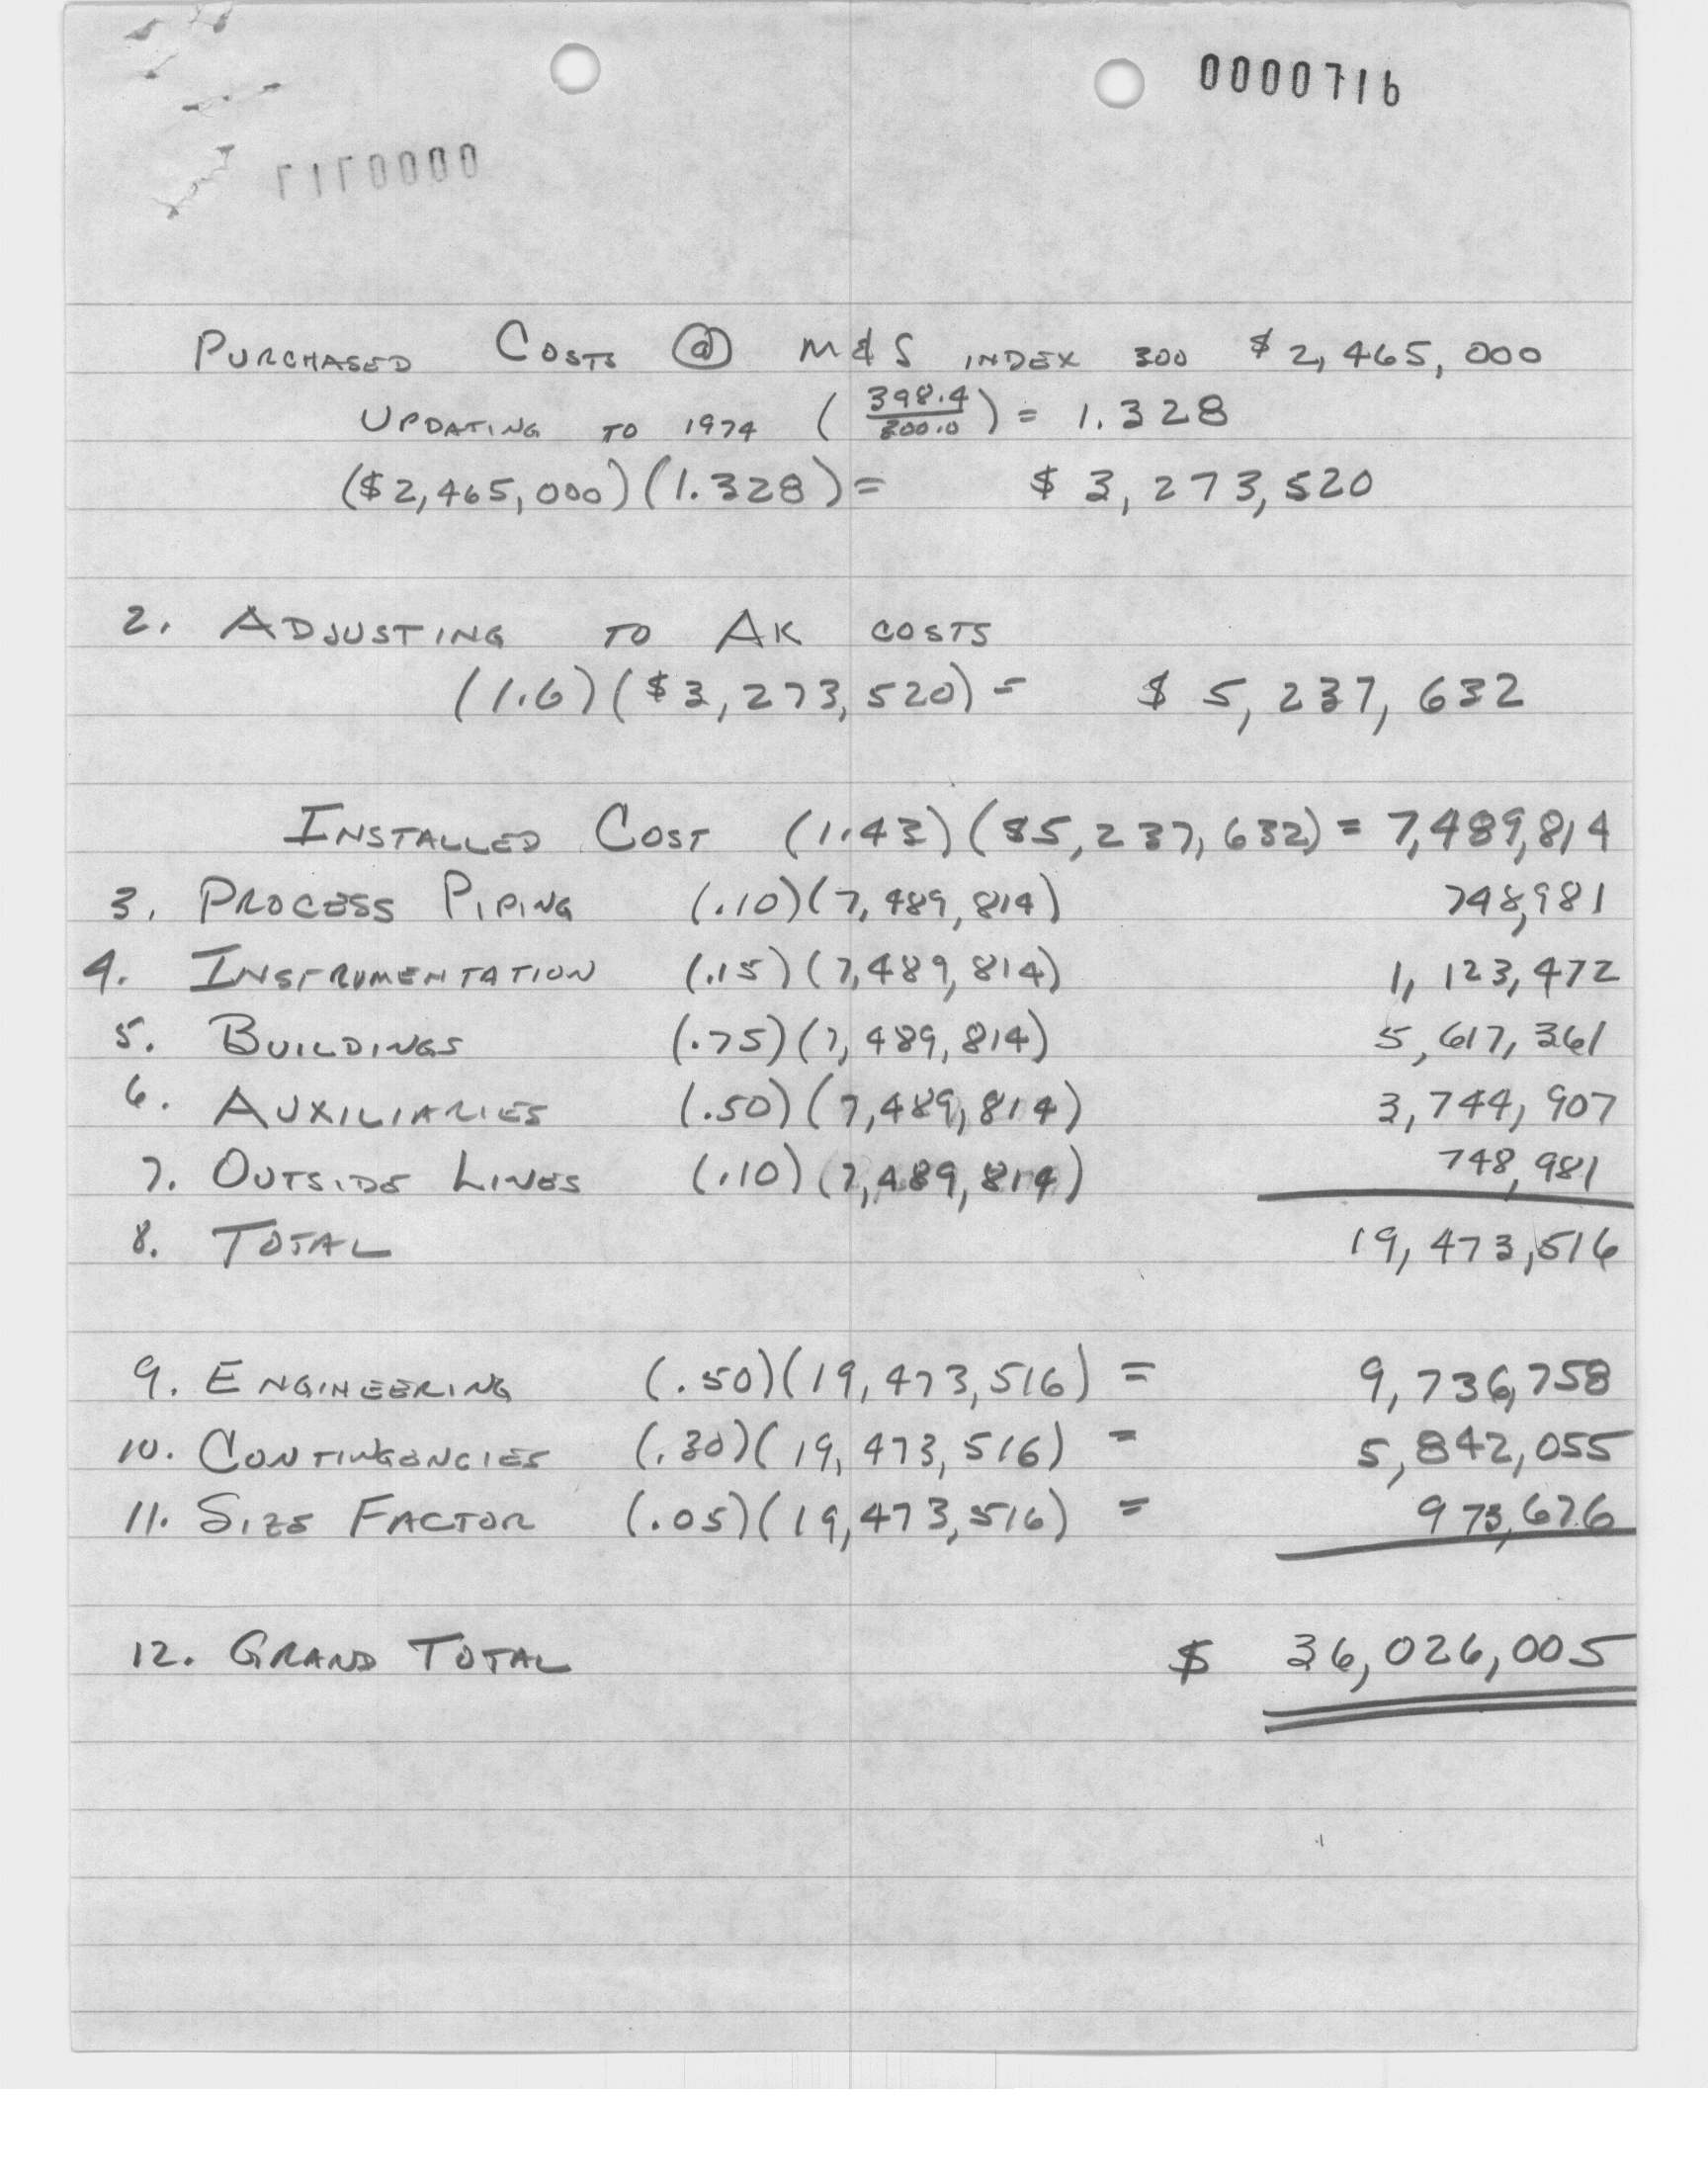 0000716
0000717
PURCHASED COSTS @ M&S INDEX 300 $2,465,000
UPDATING TO 1974 (398.4/300.0) = 1.328
($2,465,000)(1.328)= $3,273,520
2. ADJUSTING TO AK COSTS
(1.6)($3,273,520)= $5,237,632
INSTALLED COST (1.43)($5,237,632)= 7,489,814
3. PROCESS PIPING (.10)(7,489,814) 748,981
4. INSTRUMENTATION (.15)(7,489,814) 1,123,472
5. BUILDINGS (.75)(7,489,814) 5,617,361
6. AUXILIARIES (.50)(7,489,814) 3,744,907
7. OUTSIDE LINES (.10)(7,489,814) 748,981
8. TOTAL 19,473,516
9. ENGINEERING (.50)(19,473,516) = 9,736,758
10. CONTINGENCIES (.30)(19,473,516) = 5,842,055
11. SIZE FACTOR (.05)(19,473,516) = 973,676
12. GRAND TOTAL $ 36,026,005